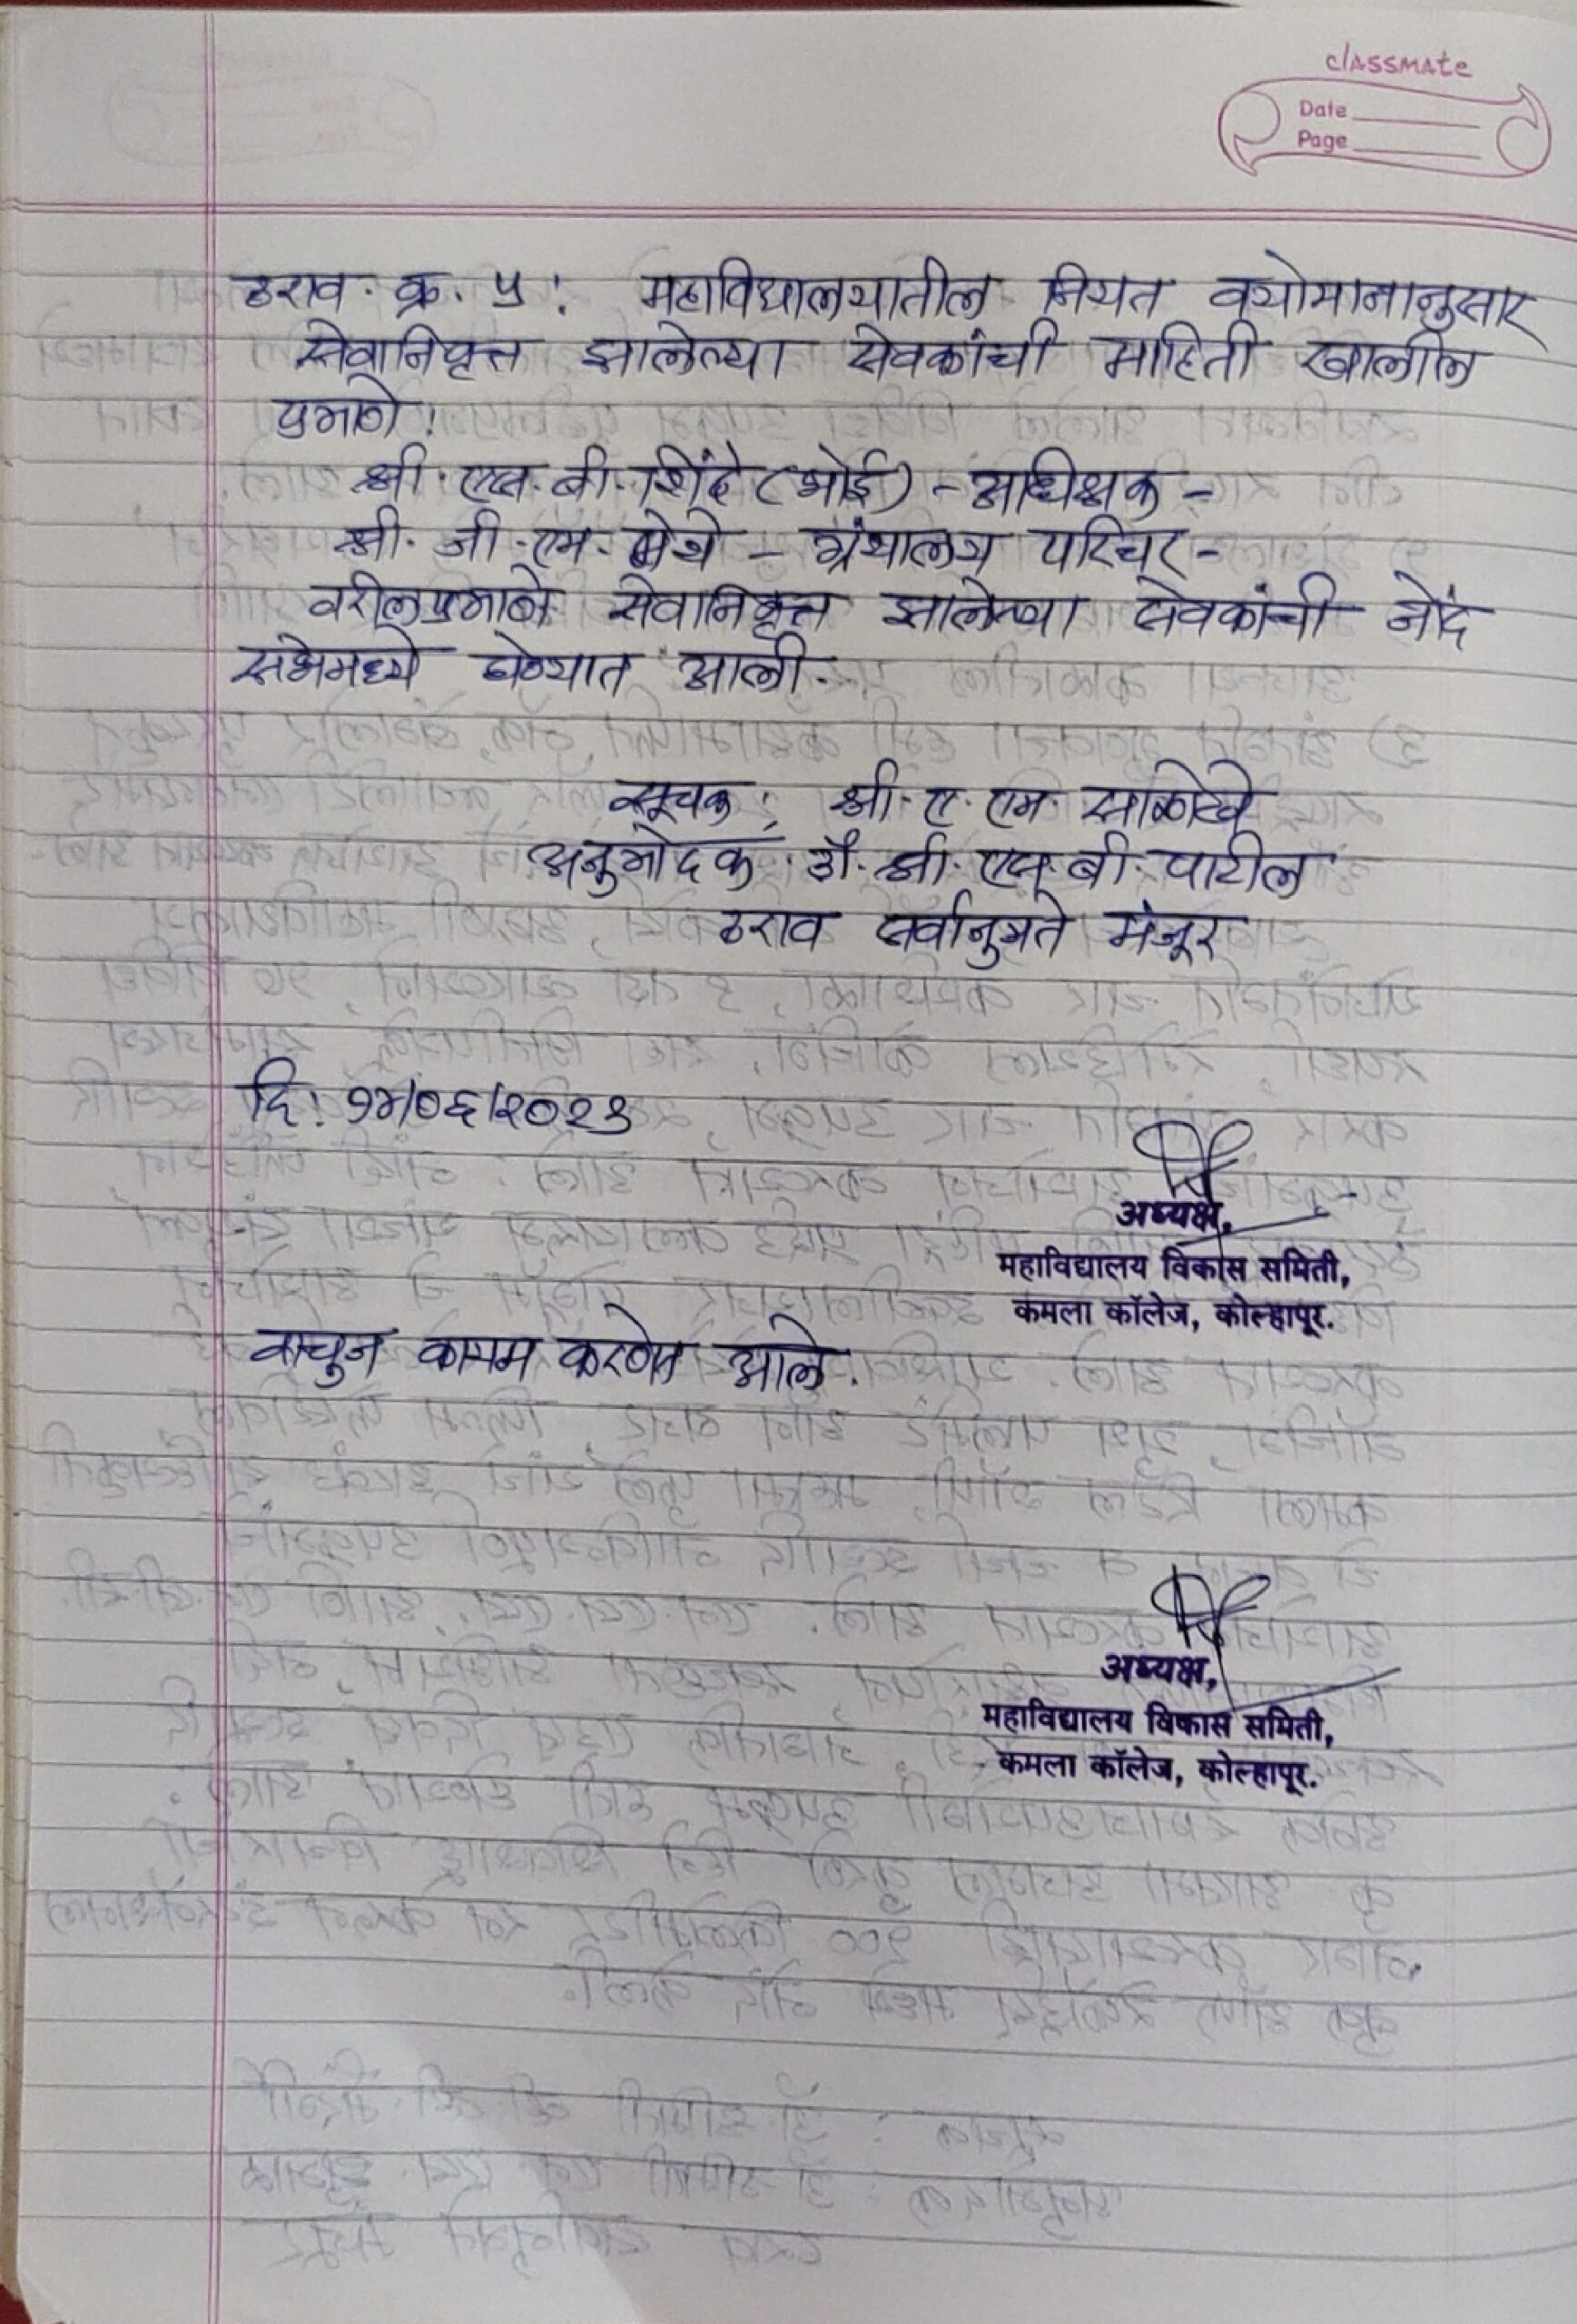 classmate
Date
Page
ठराव. क्र. ५ : महाविद्यालयातील नियत वयोमानानुसार
सेवानिवृत्त झालेल्या सेवकांची माहिती खालील
प्रमाणे :
श्री. एस. बी. शिंदे (भोई) - अधिक्षक -
श्री. जी. एम. - ग्रंथालय परिचर -
वरीलप्रमाणे सेवानिवृत्त झालेल्या सेवकांची नोंद
सभेमध्ये घेण्यात आली.
सूचक : श्री. ए. एम. साळोखे
अनुमोदक : डॉ. श्री. एस. बी. पाटील
ठराव सर्वानुमते मंजूर
दि. १४/०६/२०२३
अध्यक्ष,
महाविद्यालय विकास समिती,
कमला कॉलेज, कोल्हापूर.
वाचुन कायम करणेत आले.
अध्यक्ष,
महाविद्यालय विकास समिती,
कमला कॉलेज, कोल्हापूर.